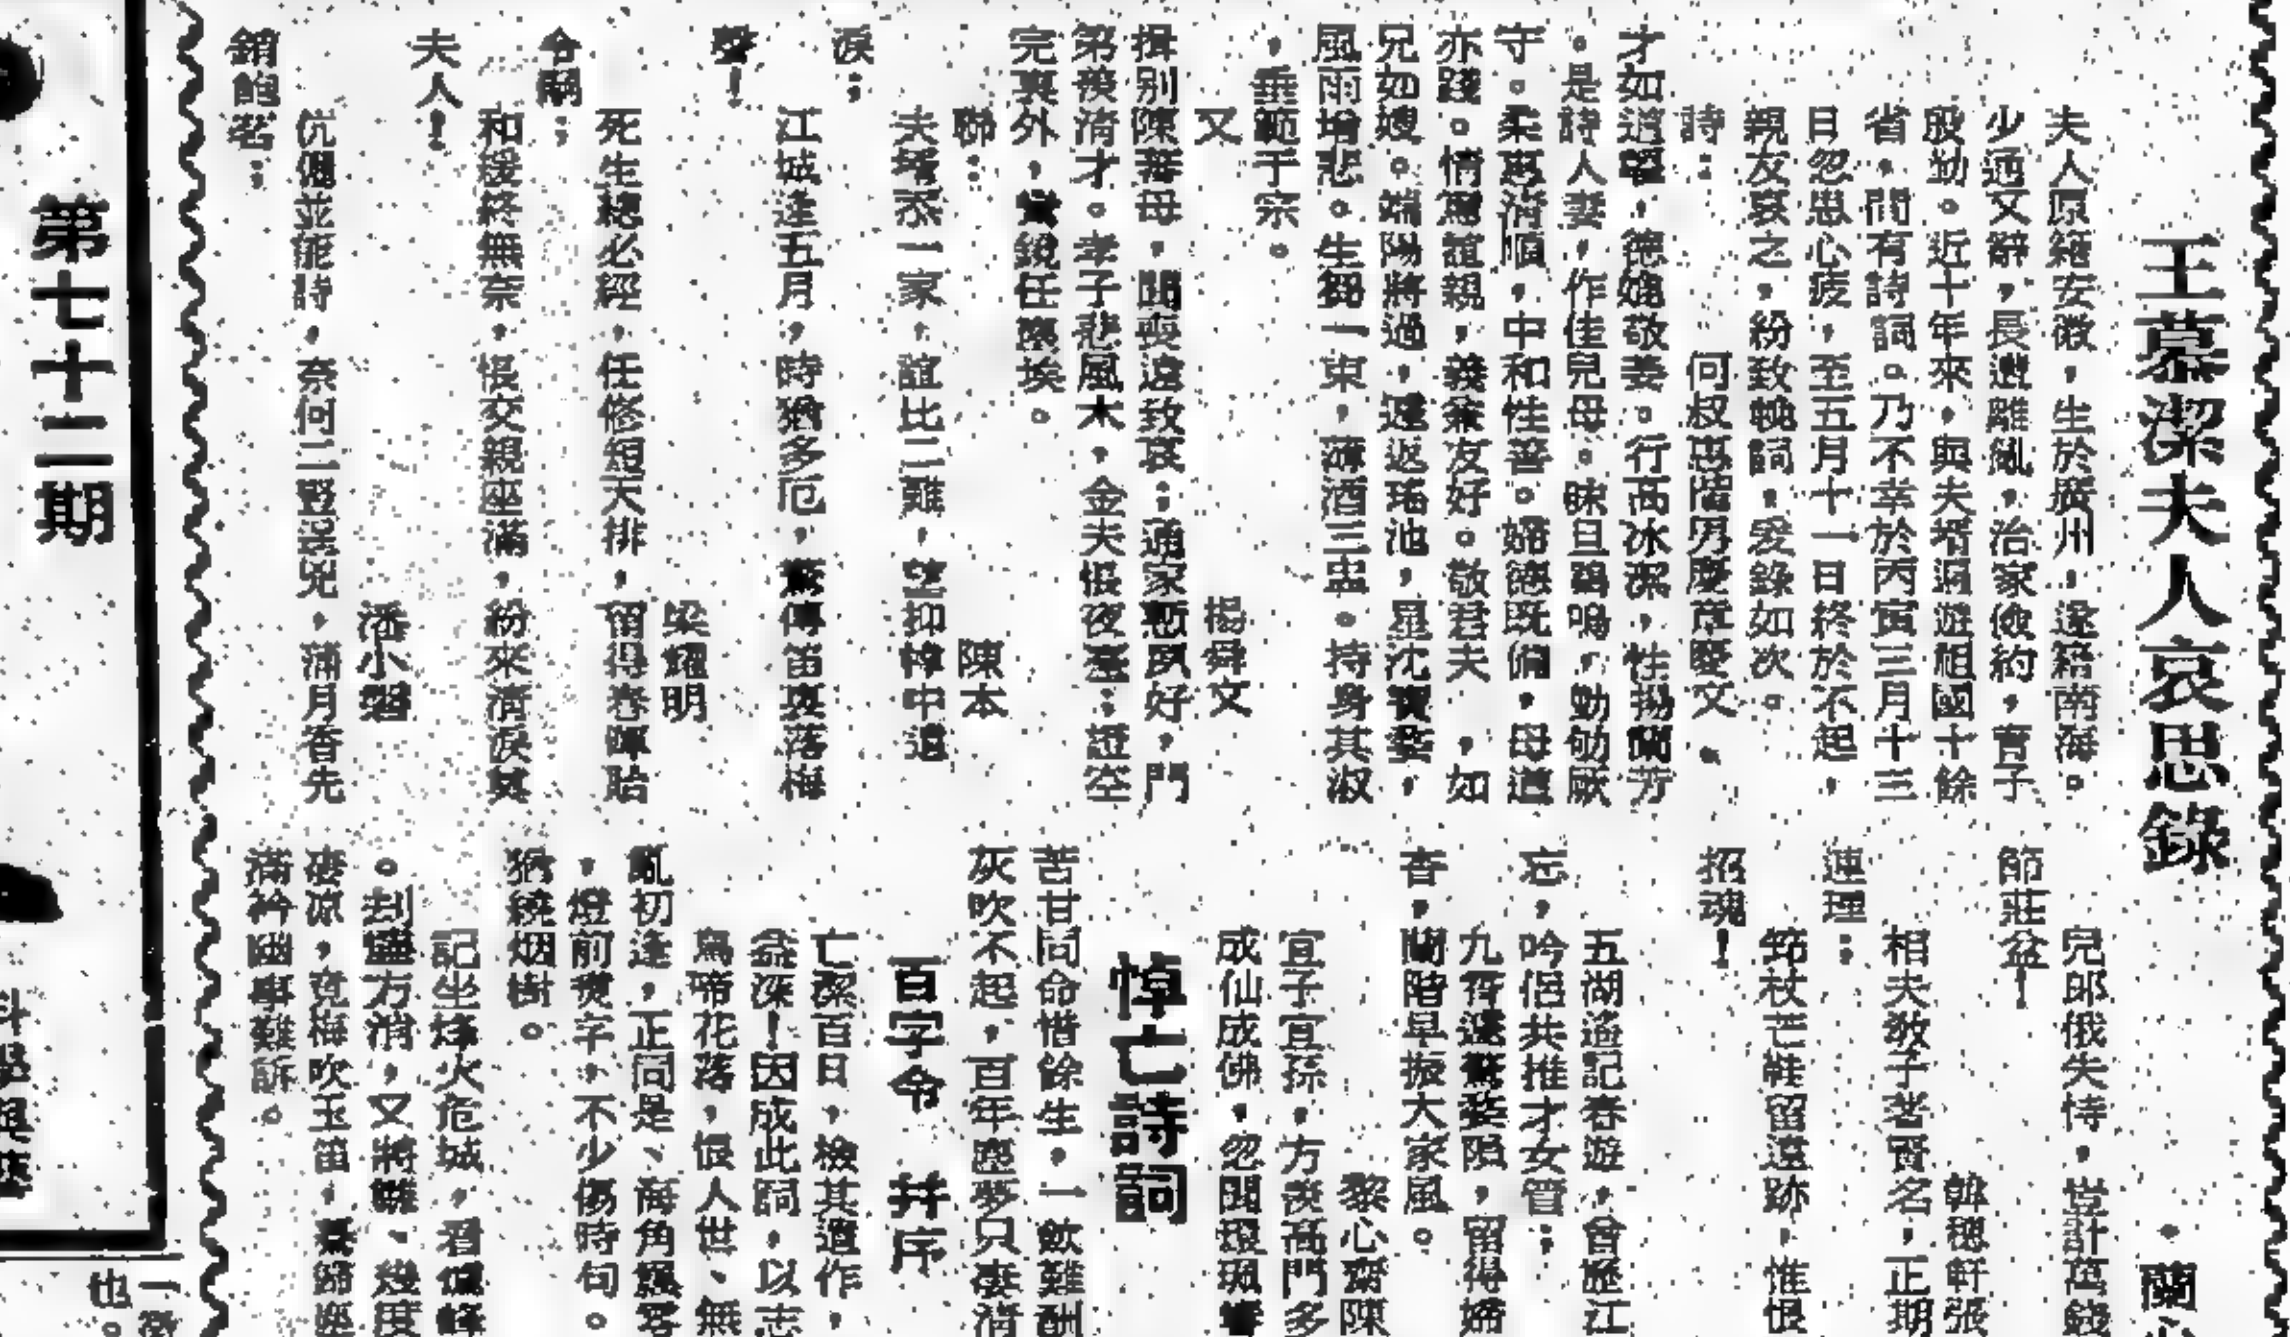 王慕潔夫人哀思錄
・蘭
夫人原籍安徽，生於廣州，遂籍南海。
少通文辭，長遭離亂，治家儉約，育子
殷勤。近十年來，與夫壻遍遊祖國十餘
省，間有詩詞。乃不幸於丙寅三月十三
日忽思心疲，至五月十一日終於不起，
親友哀之，紛致輓詞，爰錄如次。
詩：　何叔惠階男慶章慶文・
才如道韞，德媲敬姜。行高冰潔，性揚蘭芳
。是詩人妻，作佳兒母。昧旦鷄鳴，勤劬厥
守。柔惠清順，中和性善。婦德既備，母道
亦踐。情爲誼親，義兼友好。敬君夫　，如
兄如嫂。端陽將過，遽返瑤池，星沈寶婺，
風雨增悲。生芻一束，薄酒三盅。持身其淑
，垂範于宗。
又　楊舜文
揖别陳蕃母，聞喪遠致哀；通家慙夙好，門
第羨清才。孝子悲風木，金夫恨夜臺；證空
完裏外，寶鏡任塵埃。
聯：　陳本
夫壻忝一家，誼比二難，望抑悼中過
淚；
江城逢五月，時猶多厄，驚傳笛裏落梅
聲！
梁耀明
死生總必經，任修短天排，留得春暉貽
令嗣；
和緩終無奈，悵交親座滿，紛來清淚奠
夫人！
潘小磐
伉儷並能詩，奈何二豎逞兇，蒲月香先
銷鮑茗；
兒郎俄失恃，豈計萬錢
節莊盆！
韓穗軒張
相夫敎子著賢名，正期
連理；
筇杖芒鞋留遠跡，惟恨
招魂！
五湖遙記春遊，曾歷江
忘，吟侶共推才女管；
九霄遽驚婺隕，留得婦
杳，蘭階早振大家風。
黎心齋陳
宜子宜孫，方羨高門多
成仙成佛，忽聞環珮
悼亡詩詞
苦甘同命惜餘生，一歛難酬
灰吹不起，百年塵夢只凄清
百字令　并序
亡潔百日，檢其遺作，
益深！因成此詞，以志
鳥啼花落，恨人世、無
亂初逢，正同是、海角飄零
，燈前煑字，不少傷時句。
猶繞烟樹。
記坐烽火危城，看
。刦盡方消，又將離、幾度
凄凉，竟梅吹玉笛，
滿衿幽事難訴。
第七十二期
一
也。